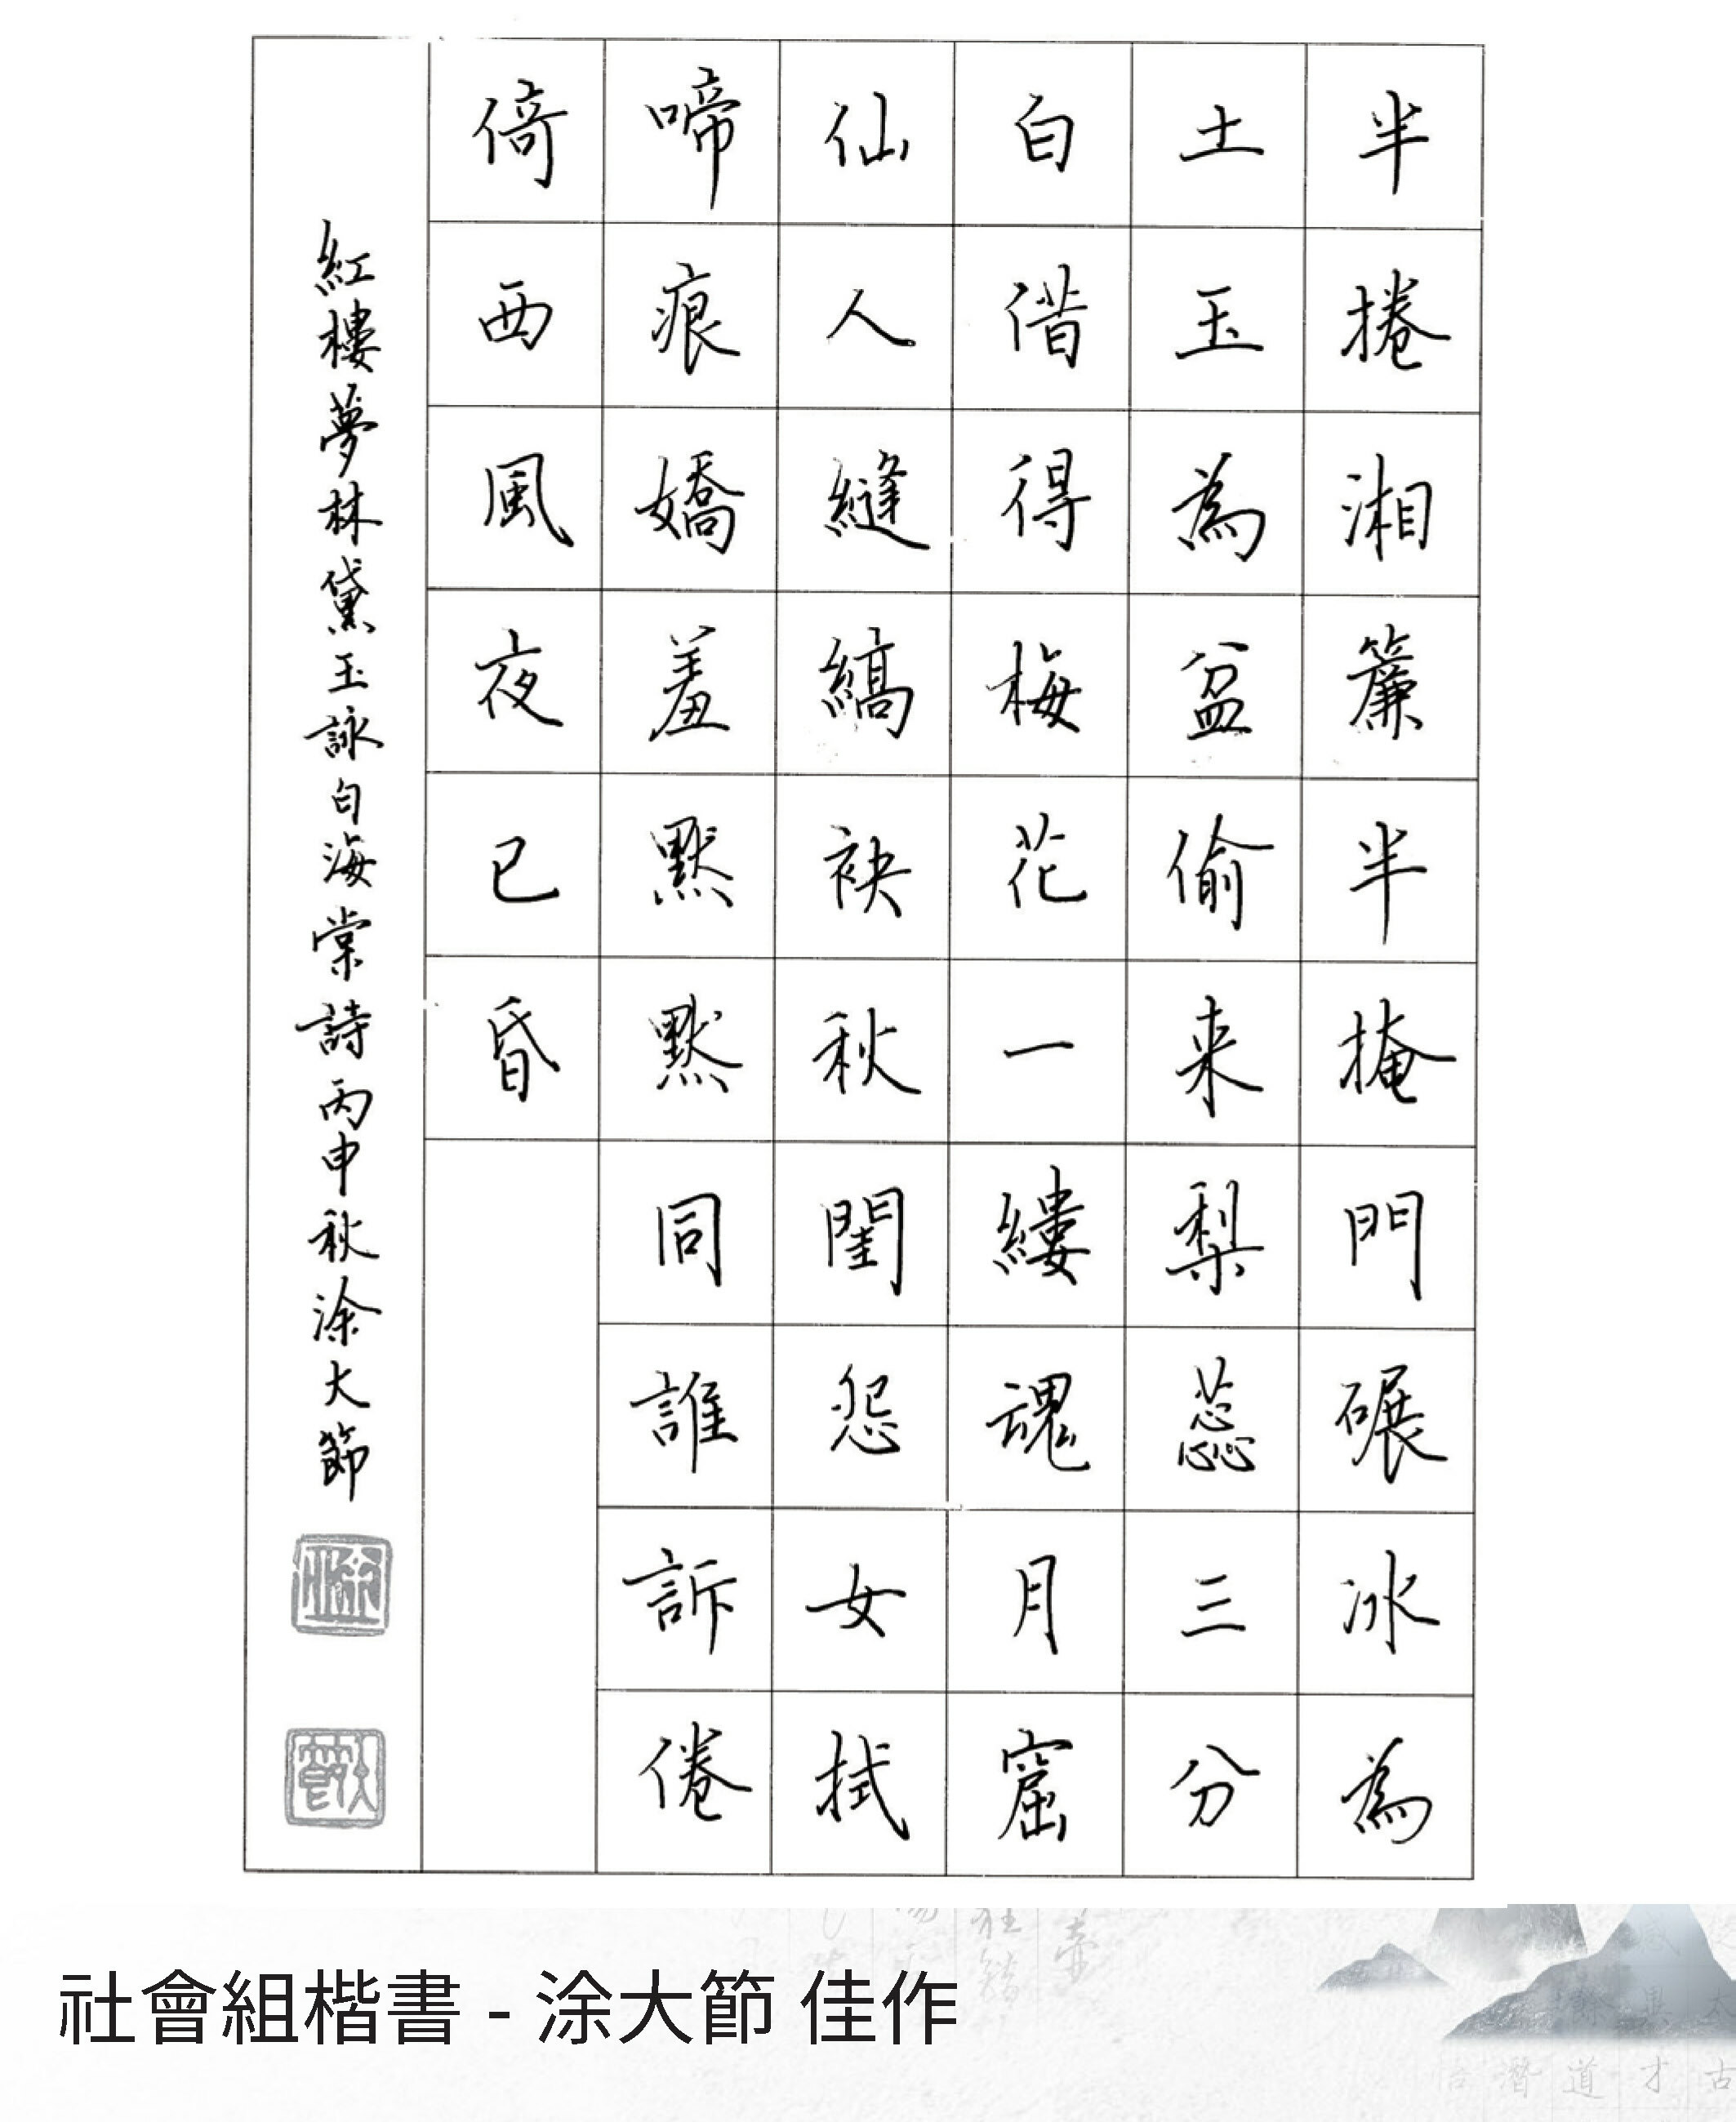 半捲湘簾半掩門碾冰為
土玉為盆偷来梨蕊三分
白借得梅花一縷魂月窟
仙人縫縞袂秋閨怨女拭
啼痕嬌羞默默同誰訴倦
倚西風夜已昏
紅樓夢林黛玉詠白海棠詩丙申秋涂大節
社會組楷書 - 涂大節 佳作